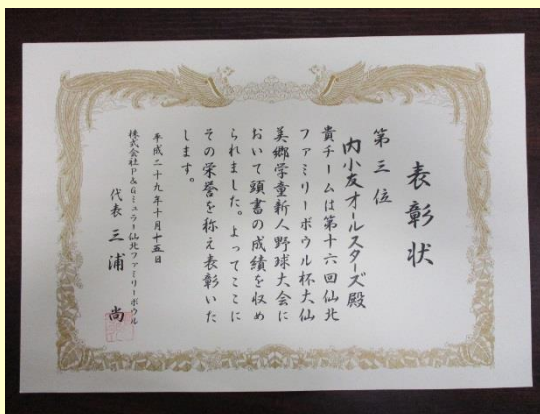 表彰状
第三位
内小友オールスターズ殿
貴チームは第十六回仙北
ファミリーボウル杯大仙
美郷学童新人野球大会に
おいて頭書の成績を収め
られました。よってここに
その栄誉を称え表彰いた
します。
平成二十九年十月十五日
株式会社P&Gミュラー仙北ファミリーボウル
代表 三浦 尚